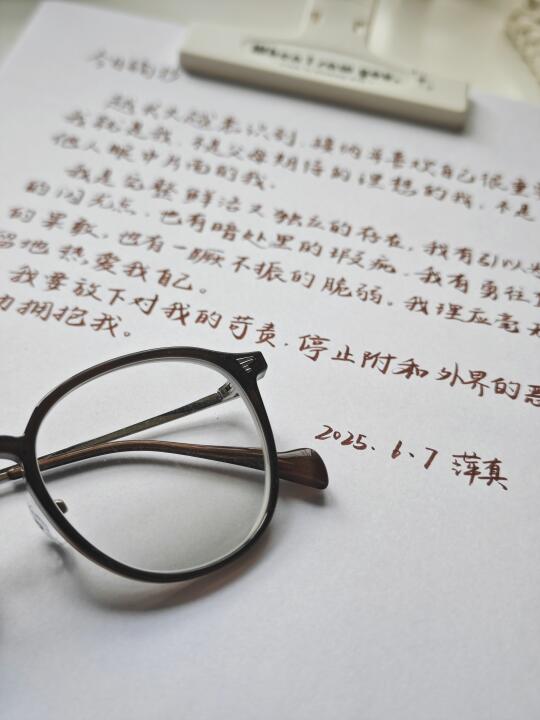 今日摘抄
越长大越意识到，接纳并喜欢自己很重要
我就是我，不是父母期待的理想的我，不是
他人眼中片面的我。
我是完整鲜活又独立的存在，我有引以为
的闪光点，也有暗处里的瑕疵，我有勇往
的果敢，也有一蹶不振的脆弱，我理应毫无
留地热爱我自己。
我要放下对我的苛责，停止附和外界的恶
力拥抱我。
2025.6.7 萍真